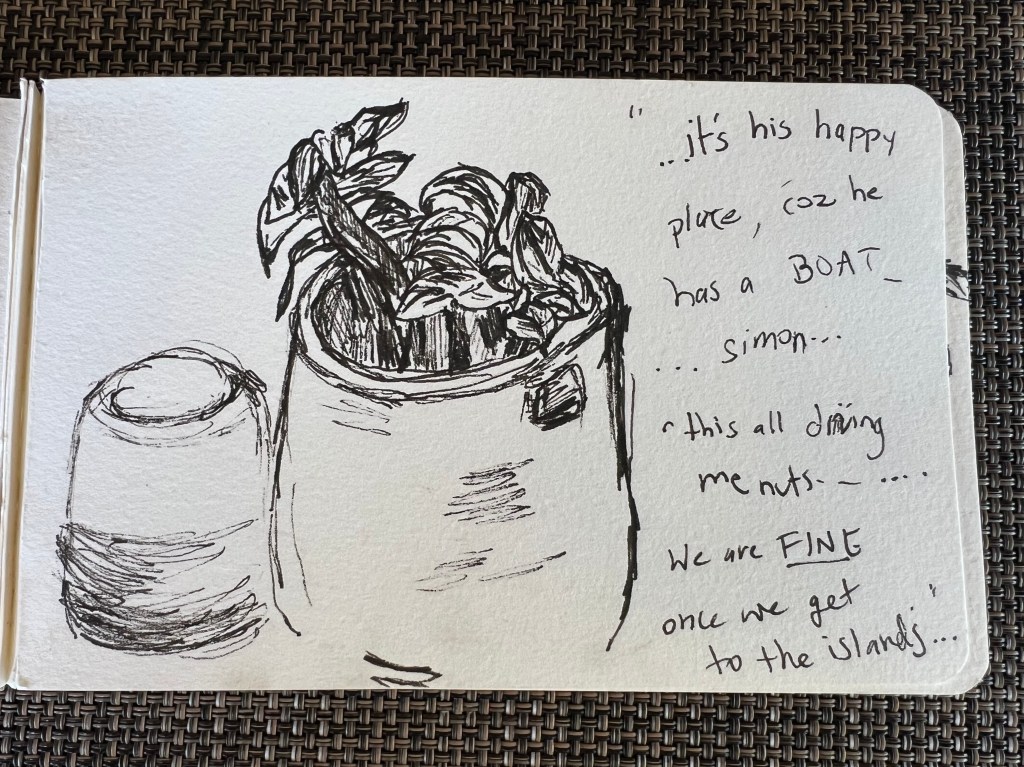 " ...it's his happy
place, 'coz he
has a BOAT_
... simon...
"this all driving
me nuts-_ ....
We are FINE
once we get
to the islands..."